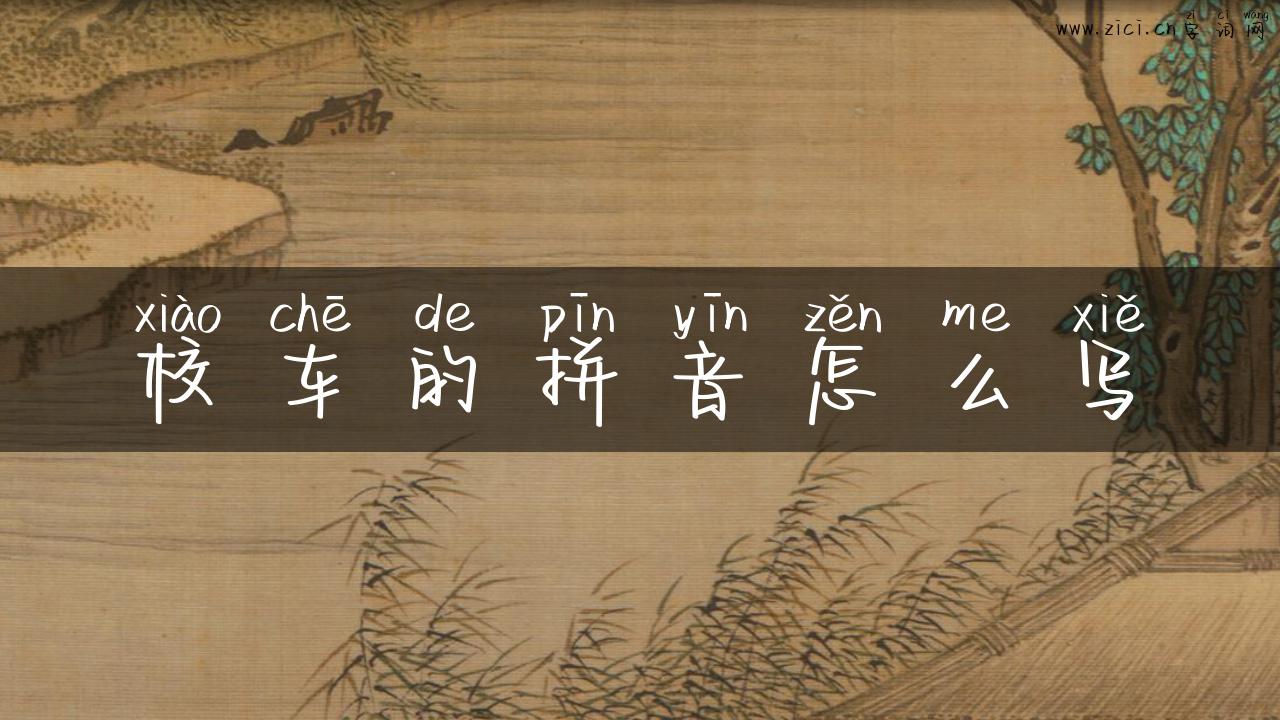 zì cí wǎng
www.zici.cn 字词网
xiào chē de pīn yīn zěn me xiě
校车的拼音怎么写